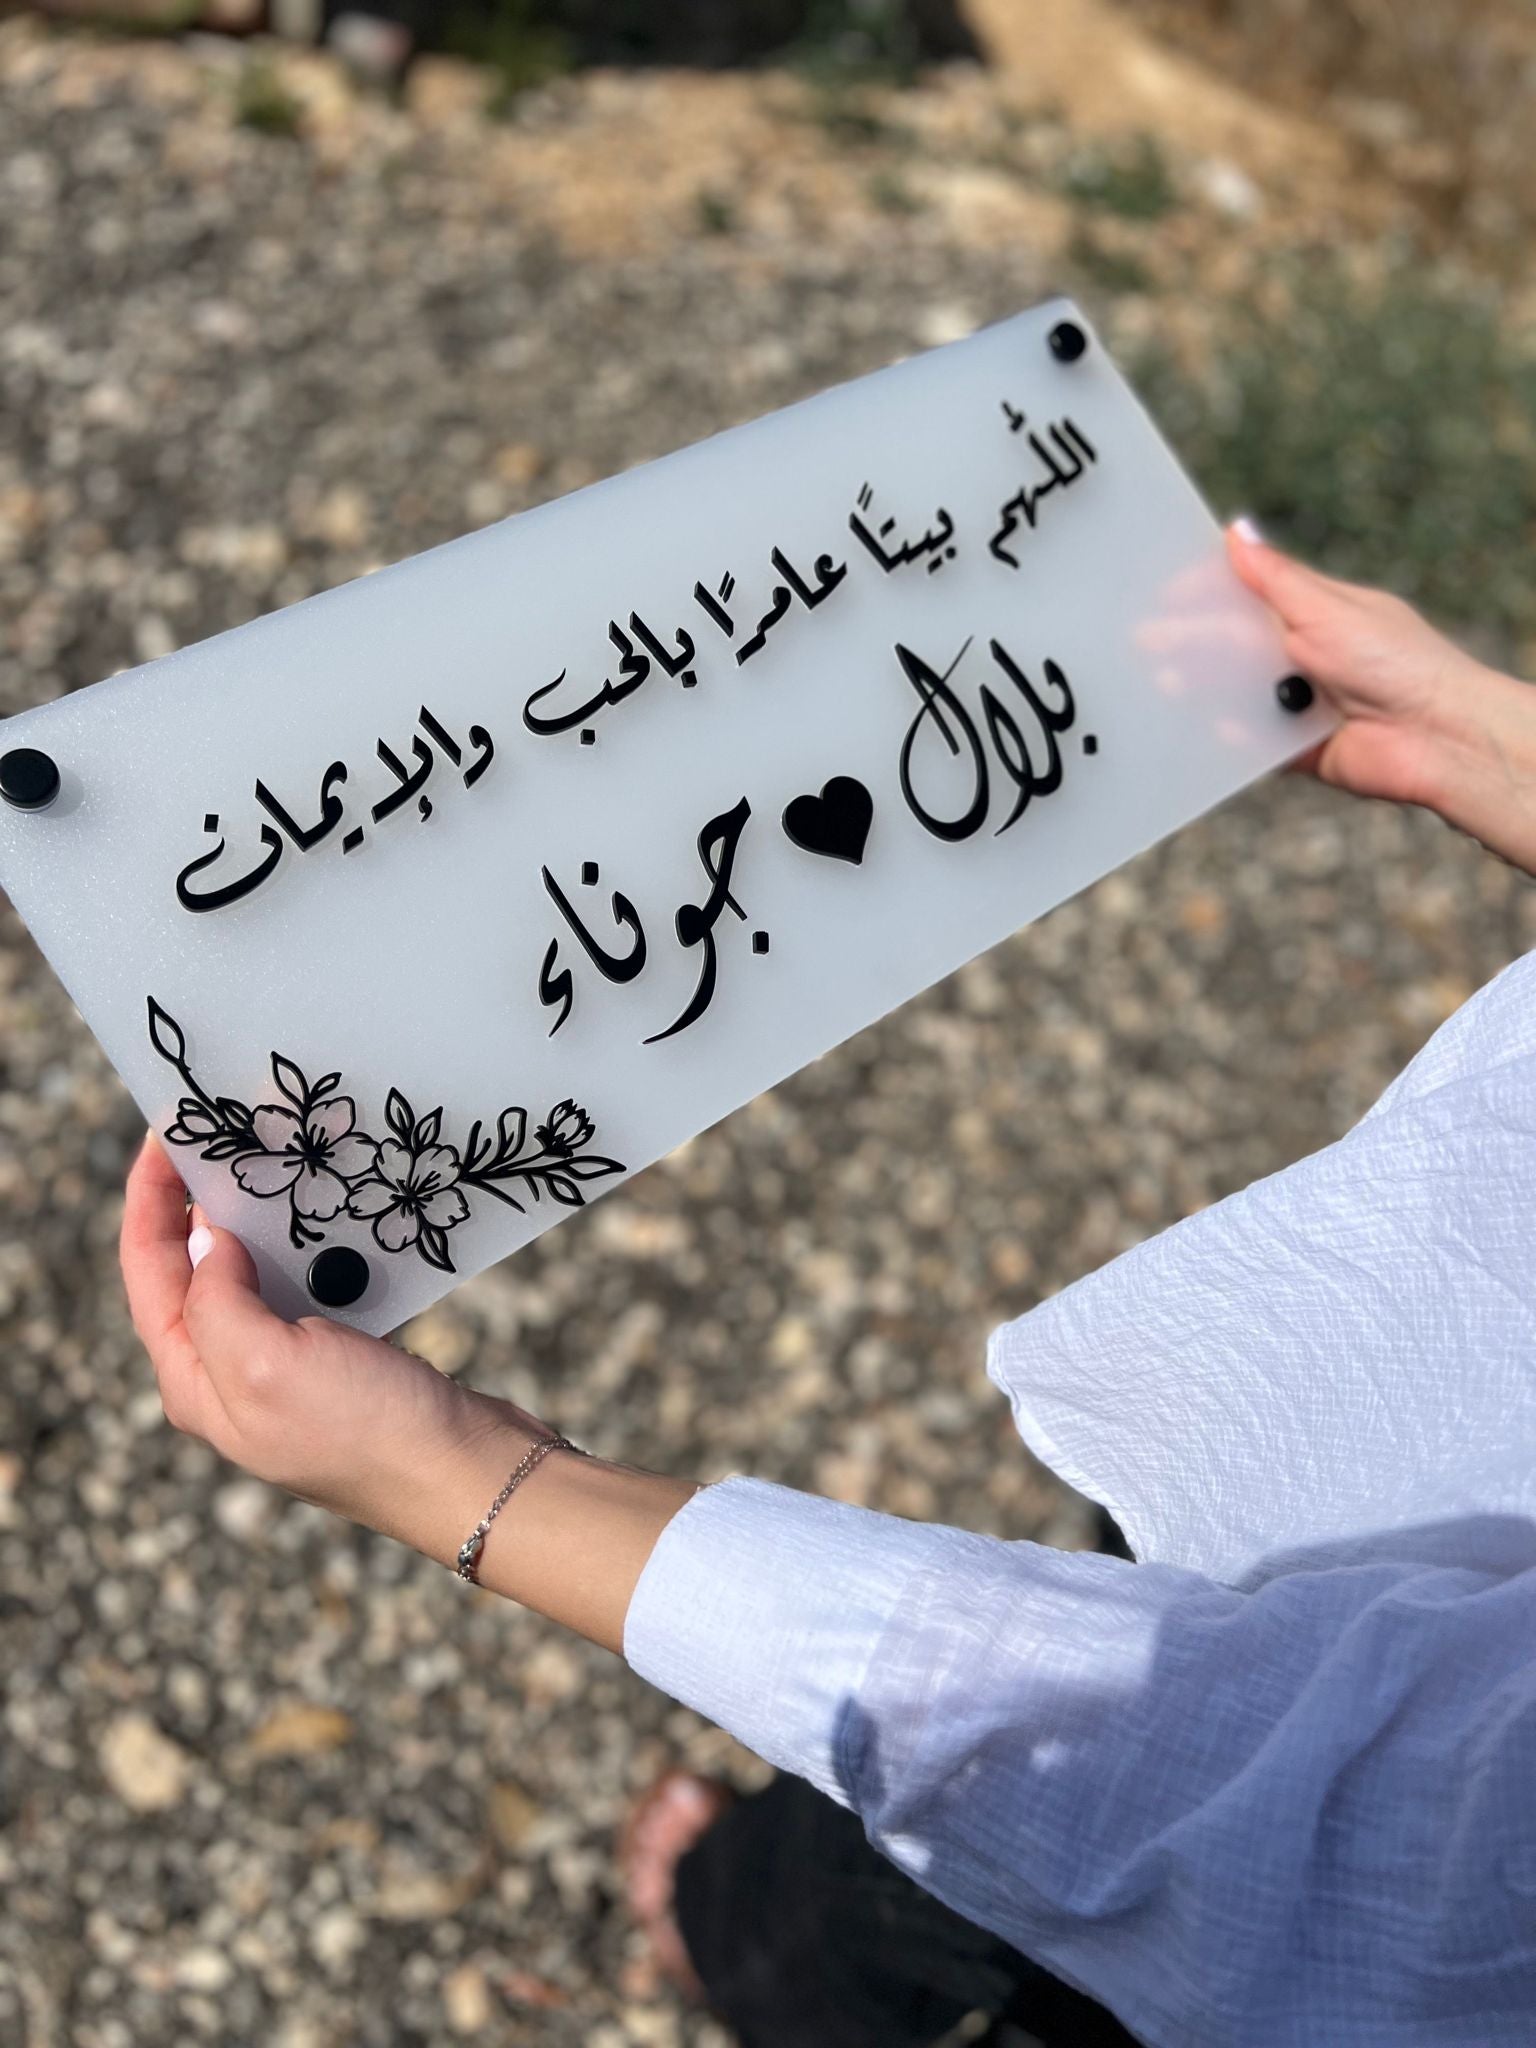 اللّهم بيتاً عامرًا بالحب والإيمان
بلال ♥ جوناء